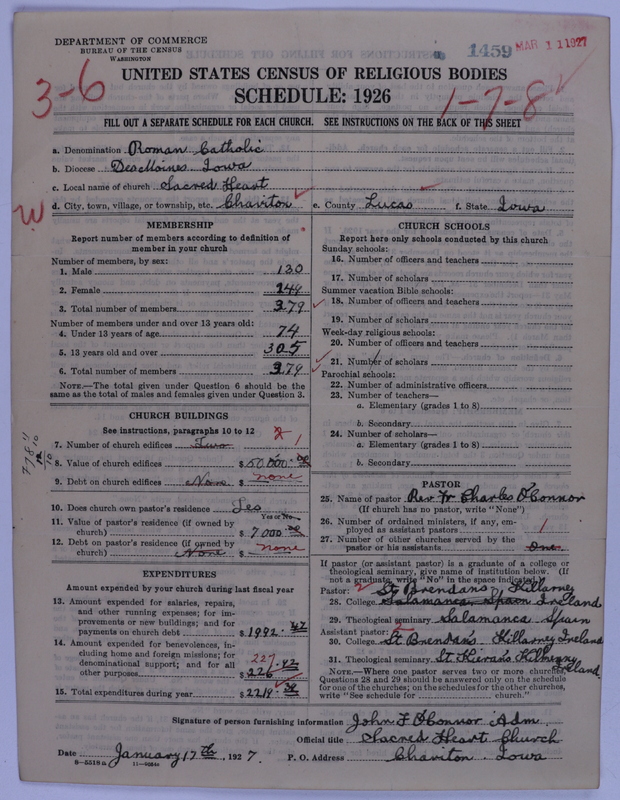 DEPARTMENT OF COMMERCE
BUREAU OF THE CENSUS
WASHINGTON
1459
MAR 11 1927
UNITED STATES CENSUS OF RELIGIOUS BODIES
SCHEDULE: 1926
3-6
1-7-8
FILL OUT A SEPARATE SCHEDULE FOR EACH CHURCH. SEE INSTRUCTIONS ON THE BACK OF THIS SHEET
a. Denomination Roman Catholic
b. Diocese Des Moines Iowa
c. Local name of church Sacred Heart
d. City, town, village, or township, etc. Chariton e. County Lucas f. State Iowa
W
MEMBERSHIP
Report number of members according to definition of
member in your church
Number of members, by sex:
1. Male 130
2. Female 249
3. Total number of members 379
Number of members under and over 13 years old:
4. Under 13 years of age 74
5. 13 years old and over 305
6. Total number of members 379
NOTE.—The total given under Question 6 should be the
same as the total of males and females given under Question 3.
CHURCH BUILDINGS
See instructions, paragraphs 10 to 12
7. Number of church edifices Two 1
8. Value of church edifices $ 50,000.00
9. Debt on church edifices None $ none
10. Does church own pastor's residence Yes
Yes or No
11. Value of pastor's residence (if owned by
church) $ 7000.00
12. Debt on pastor's residence (if owned by
church) None $ none
EXPENDITURES
Amount expended by your church during last fiscal year
13. Amount expended for salaries, repairs,
and other running expenses; for im-
provements or new buildings; and for
payments on church debt $ 1992.42
14. Amount expended for benevolences, in-
cluding home and foreign missions; for
denominational support; and for all
other purposes $ 226.42
227
15. Total expenditures during year $ 2219.
CHURCH SCHOOLS
Report here only schools conducted by this church
Sunday schools:
16. Number of officers and teachers
17. Number of scholars
Summer vacation Bible schools:
18. Number of officers and teachers
19. Number of scholars
Week-day religious schools:
20. Number of officers and teachers
21. Number of scholars
Parochial schools:
22. Number of administrative officers
23. Number of teachers—
a. Elementary (grades 1 to 8)
b. Secondary
24. Number of scholars—
a. Elementary (grades 1 to 8)
b. Secondary
PASTOR
25. Name of pastor Rev. Fr Charles O'Connor
(If church has no pastor, write "None")
26. Number of ordained ministers, if any, em-
ployed as assistant pastors 1
27. Number of other churches served by the
pastor or his assistants One
If pastor (or assistant pastor) is a graduate of a college or
theological seminary, give name of institution below. (If
not a graduate, write "No" in the space indicated.)
Pastor: 2 St Brendans, Killarney
28. College Salamanca Spain Ireland
29. Theological seminary Salamanca Spain
Assistant pastor: 2
30. College St Brendan's Killarney Ireland
31. Theological seminary St Kieran's Kilkenny Ireland
NOTE.—Where one pastor serves two or more churches,
Questions 28 and 29 should be answered only on the schedule
for one of the churches; on the schedules for the other churches,
write "See schedule for church."
Signature of person furnishing information John F O'Connor Adm.
Official title Sacred Heart Church
Date January 17th, 1927. P. O. Address Chariton Iowa
8-5518a